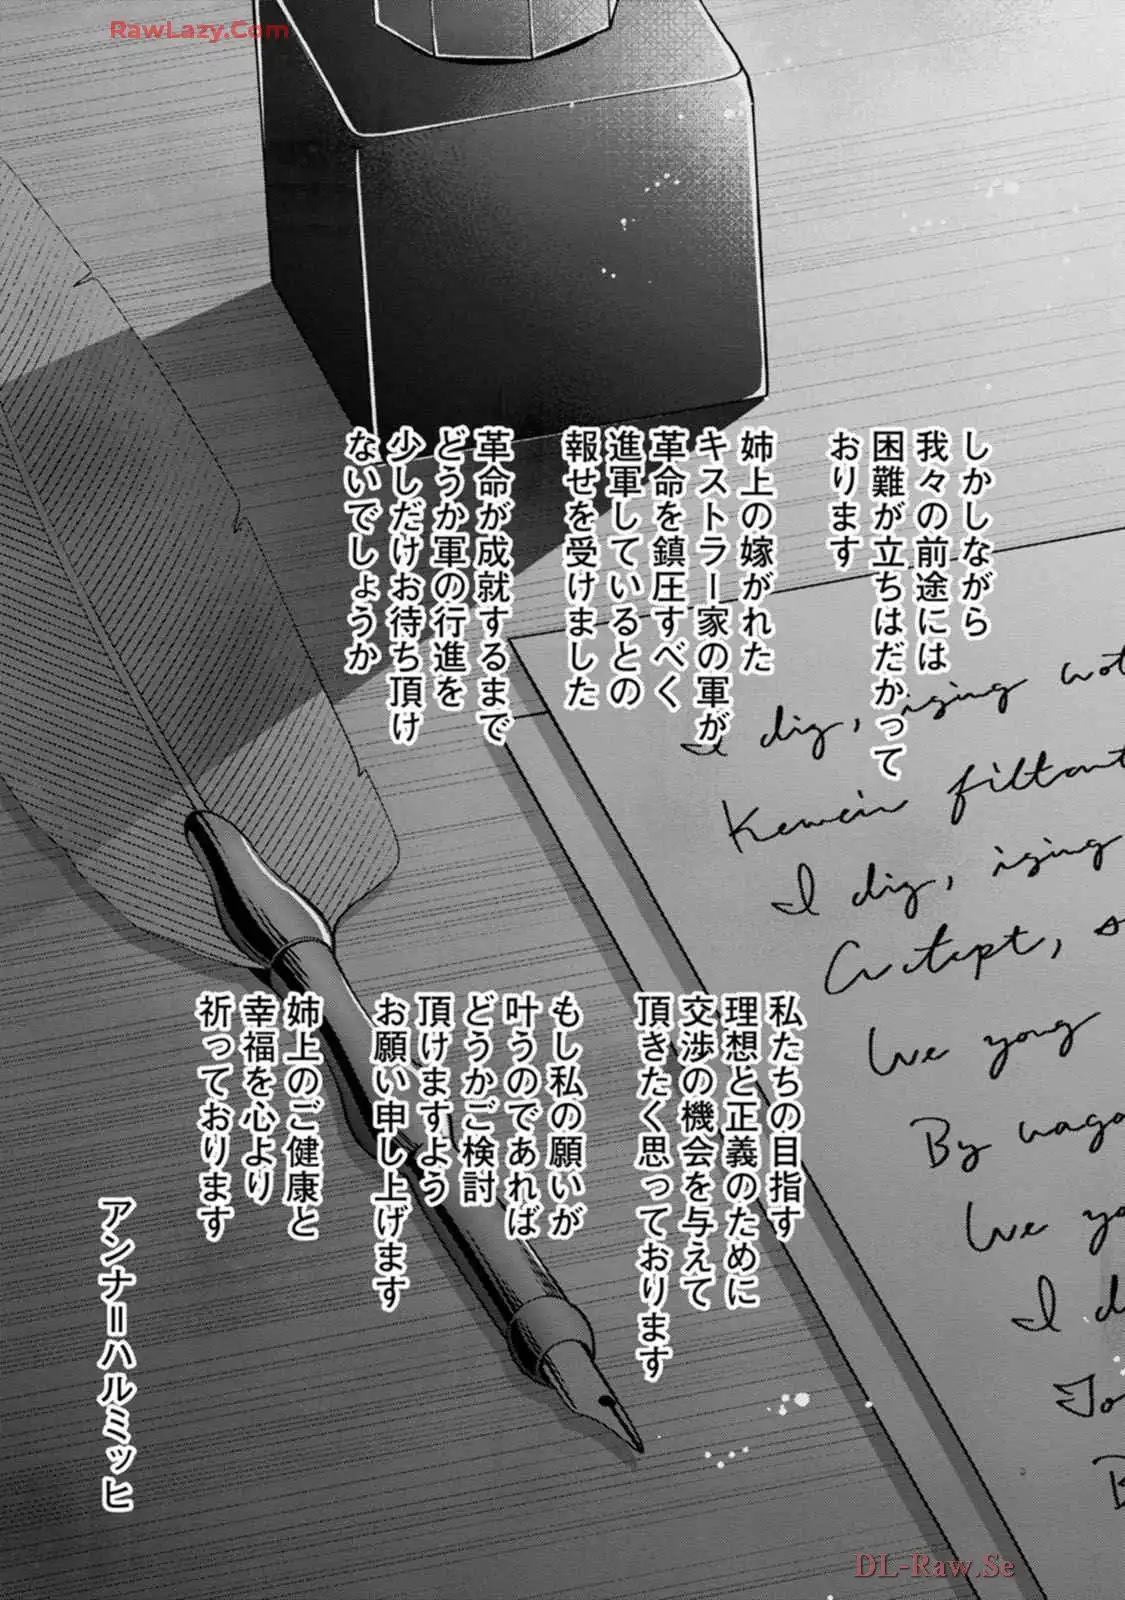 RawLazy.Com
しかしながら
我々の前途には
困難が立ちはだかって
おります
姉上の嫁がれた
キストラー家の軍が
革命を鎮圧すべく
進軍しているとの
報せを受けました
革命が成就するまで
どうか軍の行進を
少しだけお待ち頂け
ないでしょうか
私たちの目指す
理想と正義のために
交渉の機会を与えて
頂きたく思っております
もし私の願いが
叶うのであれば
どうかご検討
頂けますよう
お願い申し上げます
姉上のご健康と
幸福を心より
祈っております
アンナ=ハルミッヒ
I dig, iging
I dig, iging
We yong
By
We yo
I d
DL-Raw.Se